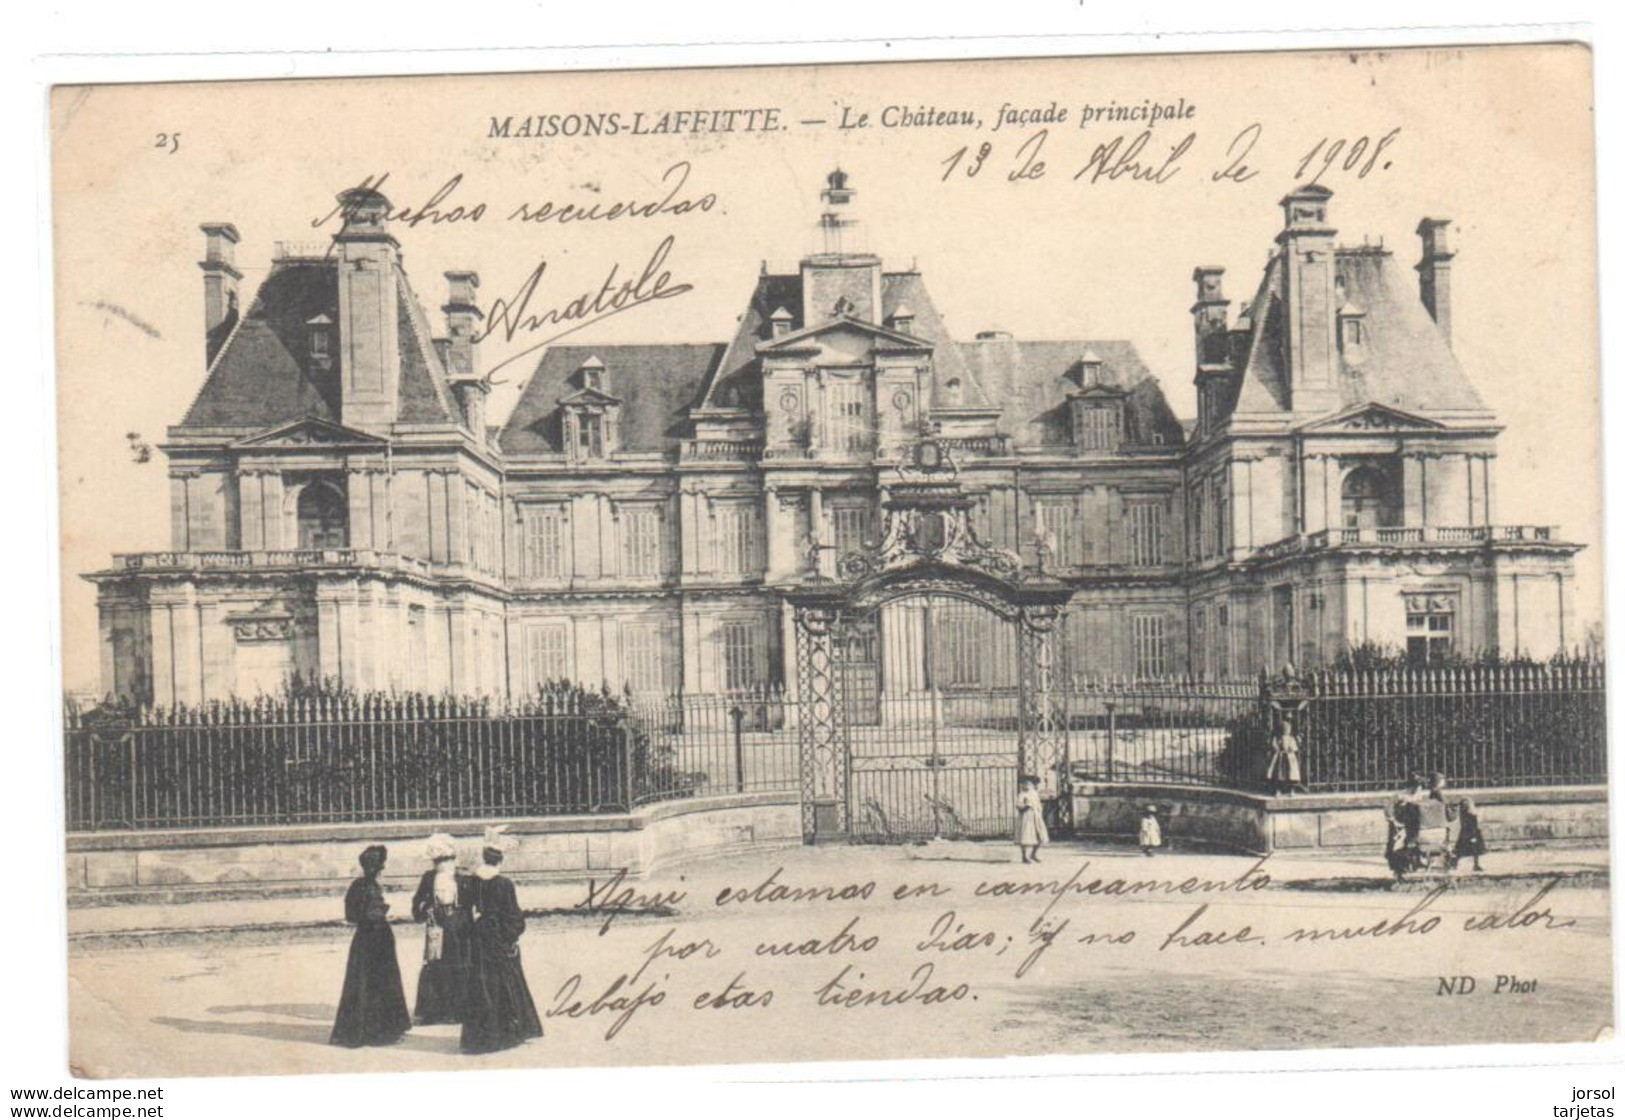 25
MAISONS-LAFFITTE. — Le Château, façade principale
13 de Abril de 1908.
Muchos recuerdos.
Anatole
Aqui estamos en campeamento
por cuatro días; y no hace mucho calor
debajo etas tiendas.
ND Phot
jorsol
tarjetas
jorsol tarjetas
jorsol tarjetas